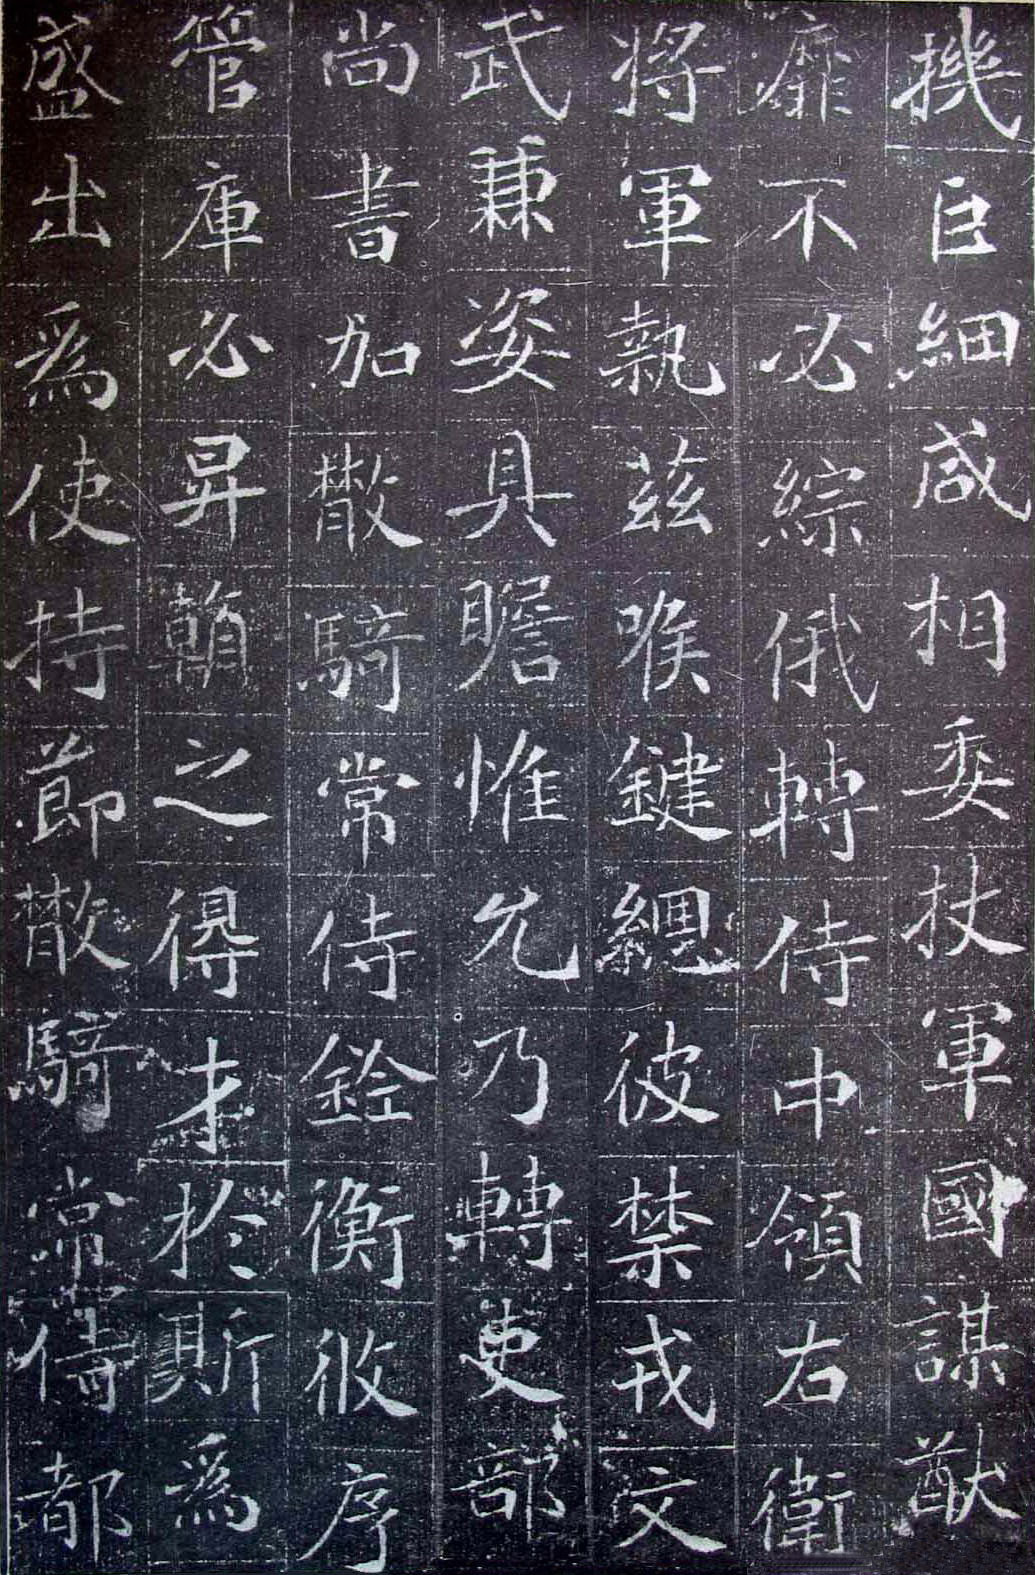 機巨細咸相委杖軍國謀猷
靡不必綜俄轉侍中領右衛
將軍執茲喉鍵總彼禁戎文
武兼姿具瞻惟允乃轉吏部
尚書加散騎常侍銓衡攸序
管庫必昇賴之得才於斯爲
盛出爲使持節散騎常侍都